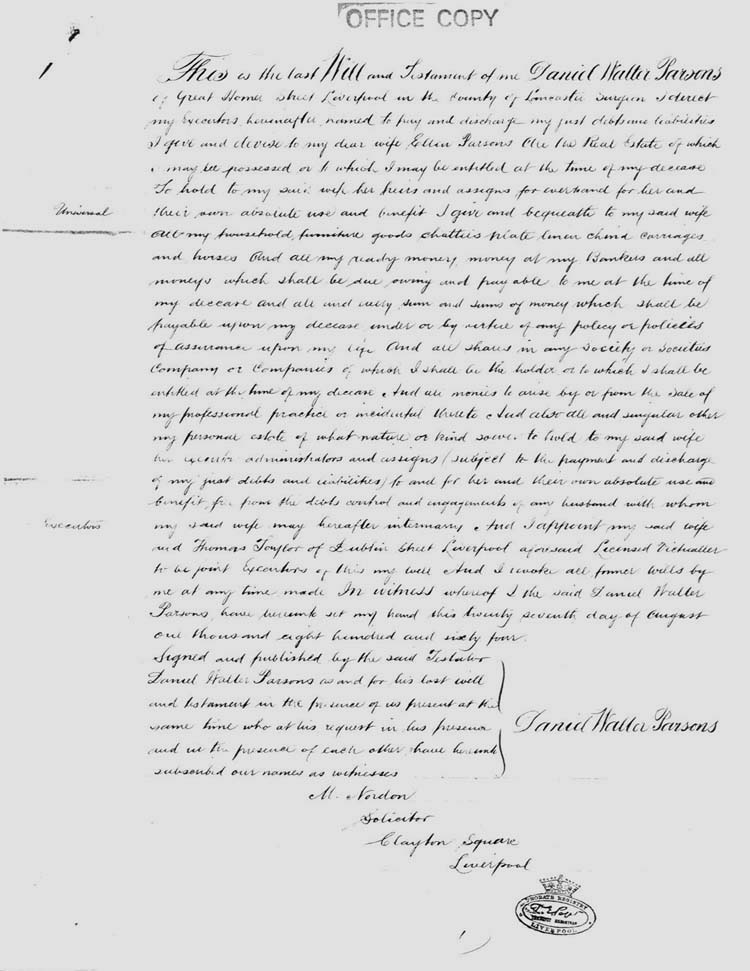 OFFICE COPY
This is the last Will and Testament of me Daniel Walter Parsons
of Great Homer Street Liverpool in the County of Lancaster Surgeon I direct
my Executors hereinafter named to pay and discharge my just debts and liabilities
I give and devise to my dear wife Ellen Parsons All the Real Estate of which
I may be possessed or to which I may be entitled at the time of my decease
To hold to my said wife her heirs and assigns for ever and for her and
Universal
their own absolute use and benefit I give and bequeath to my said wife
All my household furniture goods chattels plate linen china carriages
and horses And all my ready money money at my Bankers and all
moneys which shall be due owing and payable to me at the time of
my decease and all and every sum and sums of money which shall be
payable upon my decease under or by virtue of any policy or policies
of assurance upon my life And all shares in any Society or Societies
Company or Companies of which I shall be the holder or to which I shall be
entitled at the time of my decease And all monies to arise by or from the Sale of
my professional practice or incidental thereto And also all and singular other
my personal estate of what nature or kind soever to hold to my said wife
her executors administrators and assigns (subject to the payment and discharge
of my just debts and liabilities) to and for her and their own absolute use and
benefit free from the debts control and engagements of any husband with whom
Executors
my said wife may hereafter intermarry And I appoint my said wife
and Thomas Taylor of Dublin Street Liverpool aforesaid Licensed Victualler
to be joint Executors of this my will And I revoke all former wills by
me at any time made In witness whereof I the said Daniel Walter
Parsons have hereunto set my hand this twenty seventh day of August
one thousand eight hundred and sixty four.
Signed and published by the said Testator
Daniel Walter Parsons as and for his last will
and testament in the presence of us present at the
same time who at his request in his presence
and in the presence of each other have hereunto
subscribed our names as witnesses
Daniel Walter Parsons
M. Nordon
Solicitor
Clayton Square
Liverpool
PROBATE REGISTRY
LIVERPOOL